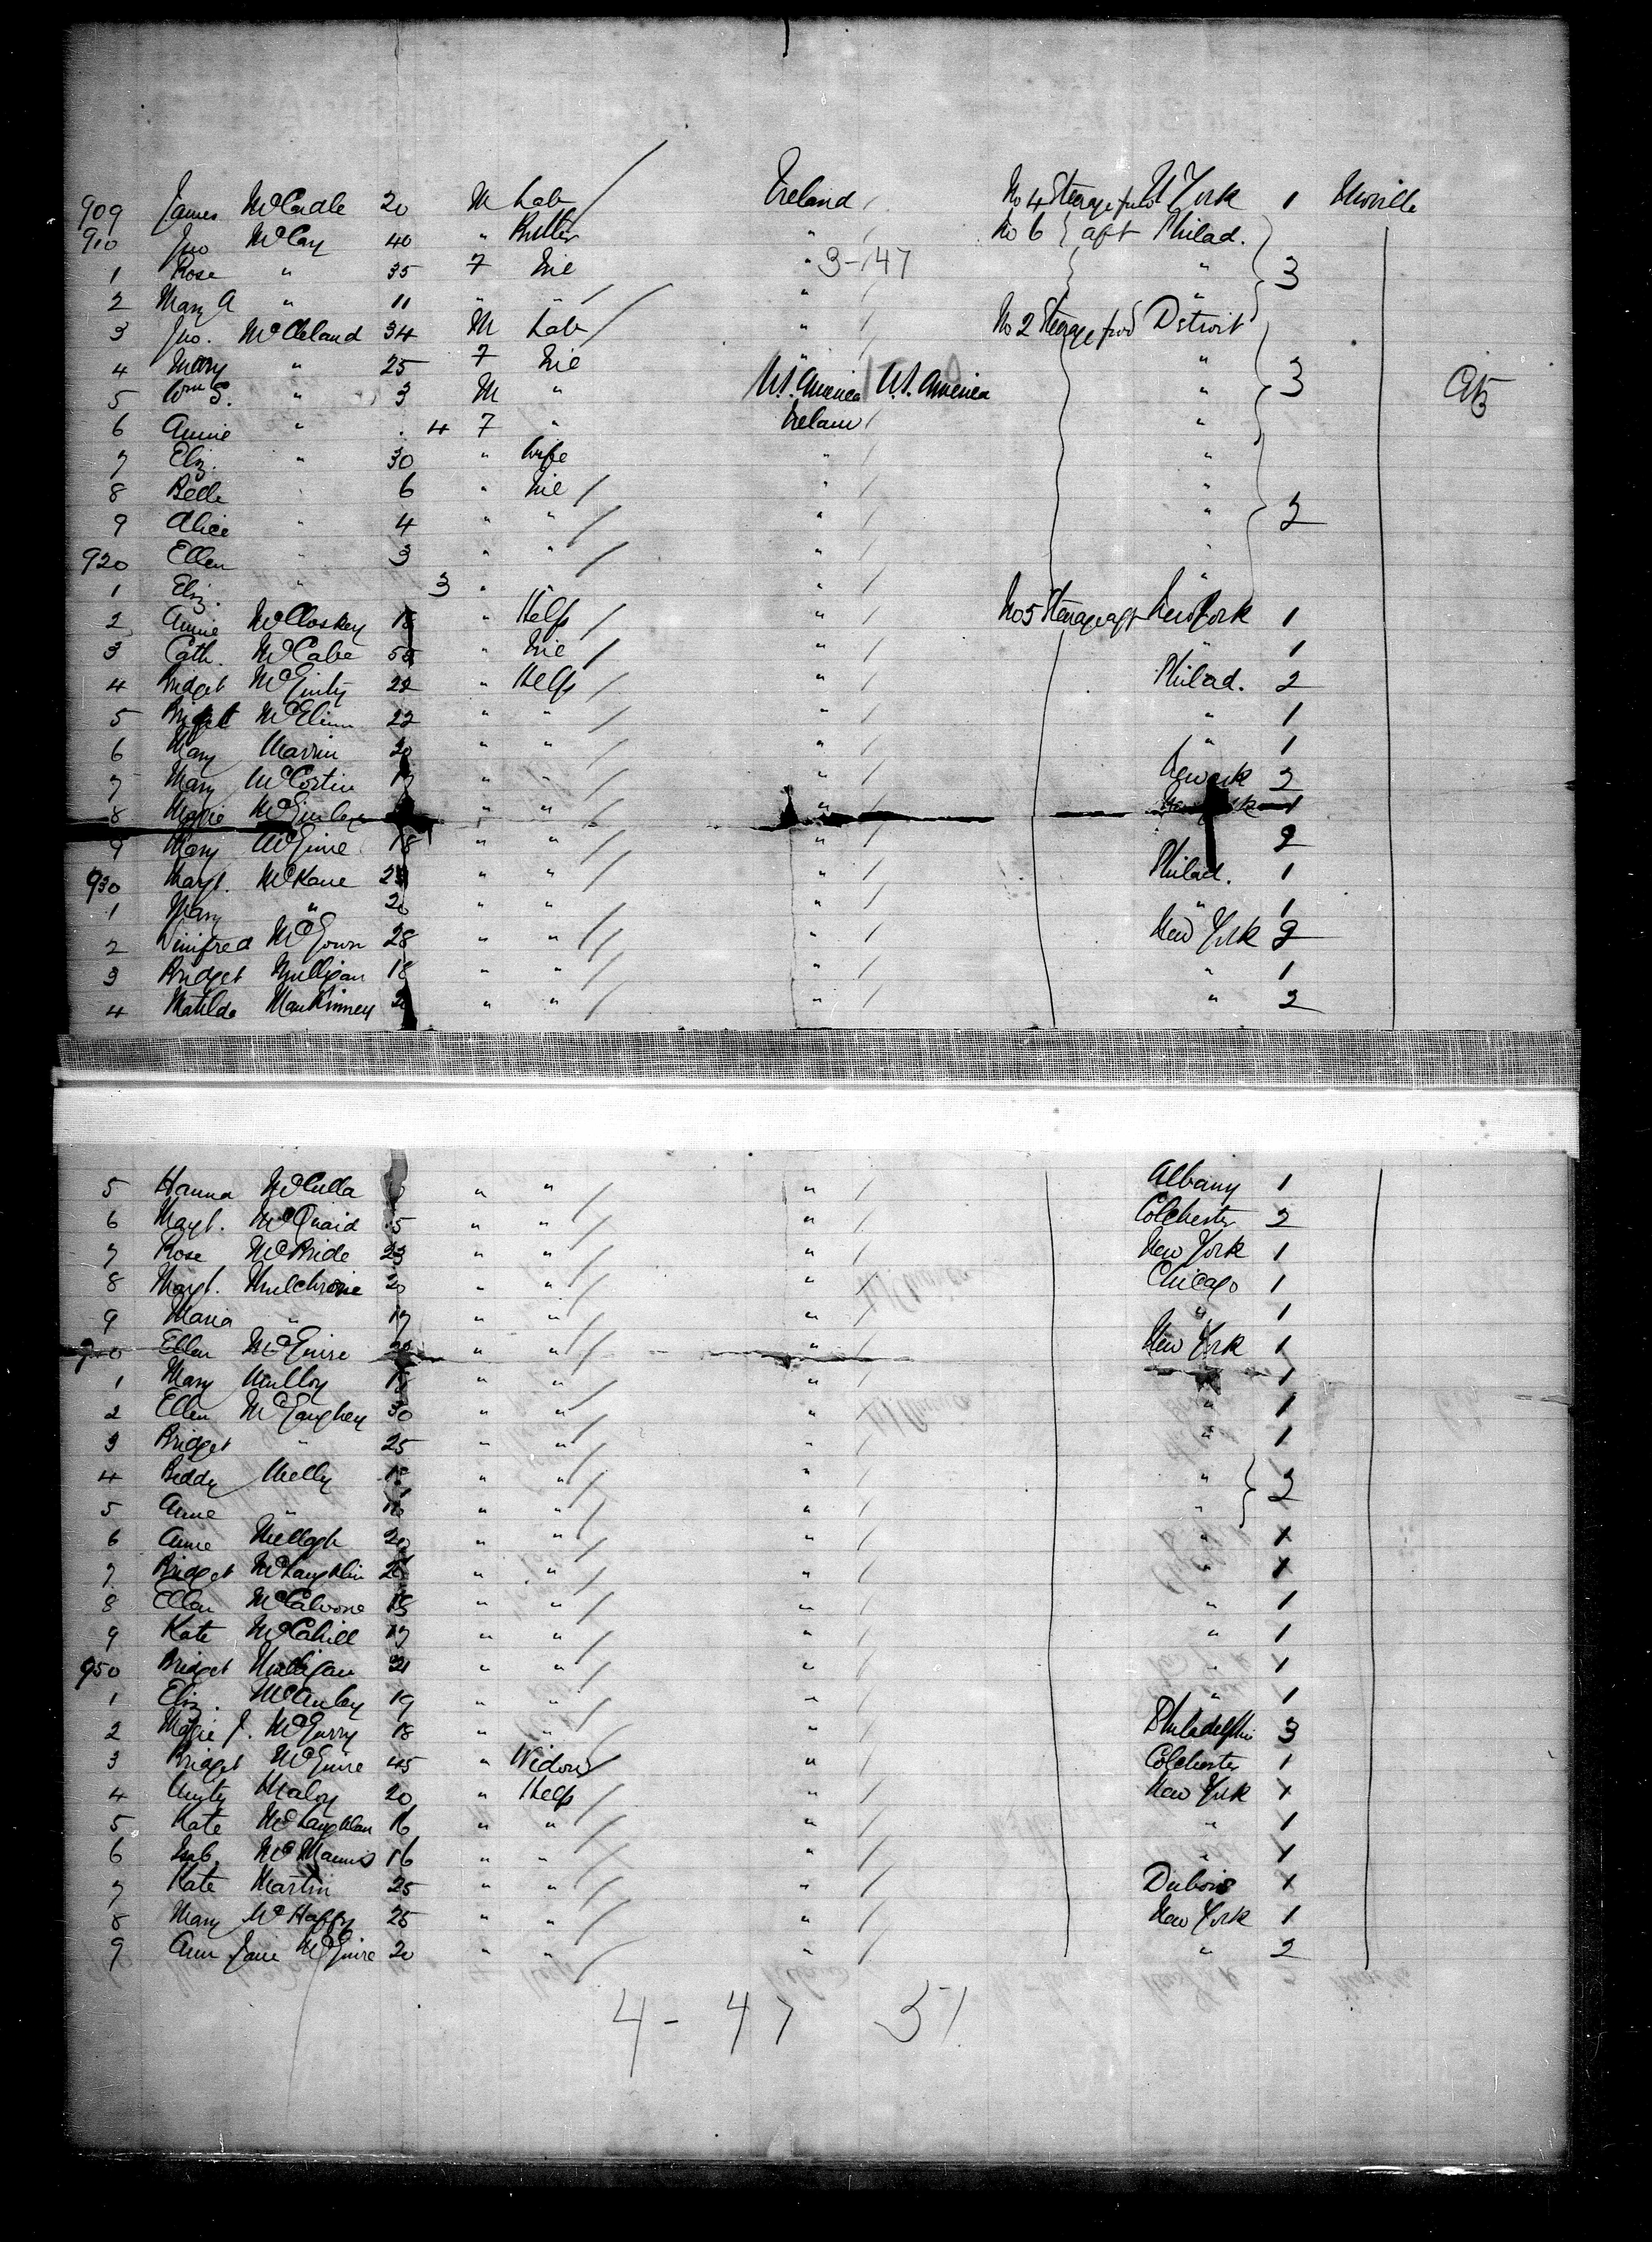 909 James McCardle 20 M Lab Ireland No 4 Steerage fwd N York 1 Moville
910 Jno McCay 40 " Butler " No 6 aft Philad.
1 Rose " 35 F Nil " 3-47 " 3
2 Mary A " 11 " " " "
3 Jno. McCleland 34 M Lab " No 2 Steerage fwd Detroit
4 Mary " 25 F Nil " " 3
5 Wm S. " 3 M " U.S. America U.S. America "
6 Annie " 4 F " Ireland "
7 Eliz. " 30 " Wife " "
8 Belle " 6 " Nil " "
9 Alice " 4 " " " " 2
920 Ellen " 3 " " " "
1 Eliz. " 3 " " " "
2 Annie McCloskey 18 " Help " No 5 Steerage aft New York 1
3 Cath. McCabe " Nil " " 1
4 Bridget McGinty 22 " Help " Philad. 2
5 Bridget McElinn 22 " " " " 1
6 Mary Marrin 20 " " " " 1
7 Mary McCostin 17 " " " Newark 2
8 Maggie McGinley " " " 1
9 Mary McGuire 18 " " " 2
930 Margt. McKane " " " Philad. 1
1 Mary " 20 " " " " 1
2 Winifred McGown 28 " " " New York 2
3 Bridget Mulligan 18 " " " " 1
4 Matilda MacKinney " " " " 2
5 Hanna McCulla " " " Albany 1
6 Margt. McQuaid " " " Colchester 2
7 Rose McBride 23 " " " New York 1
8 Margt. Mulchrone 20 " " " Chicago 1
9 Maria " 17 " " " " 1
940 Ellen McGuire " " " New York 1
1 Mary Mulloy 18 " " " 1
2 Ellen McGaughey 30 " " " " 1
3 Bridget " 25 " " " " 1
4 Biddy Melly " " " " 2
5 Anne " " " " "
6 Anne Mellagh 20 " " " " 1
7 Bridget McLaughlin " " " " 1
8 Ellen McCalvone 18 " " " " 1
9 Kate McCahill 17 " " " " 1
950 Bridget Mulligan 21 " " " " 1
1 Eliz. McAuley 19 " " " " 1
2 Maggie J. McGurry 18 " " " Philadelphia 3
3 Bridget McGuire 45 " Widow " Colchester 1
4 Unity Maloy 20 " Help " New York 1
5 Kate McLaughlan 16 " " " " 1
6 Isab. McManus 16 " " " " 1
7 Kate Martin 25 " " " Dubois 1
8 Mary McHaffy 25 " " " New York 1
9 Ann Jane McGuire 20 " " " " 2
4-47 51